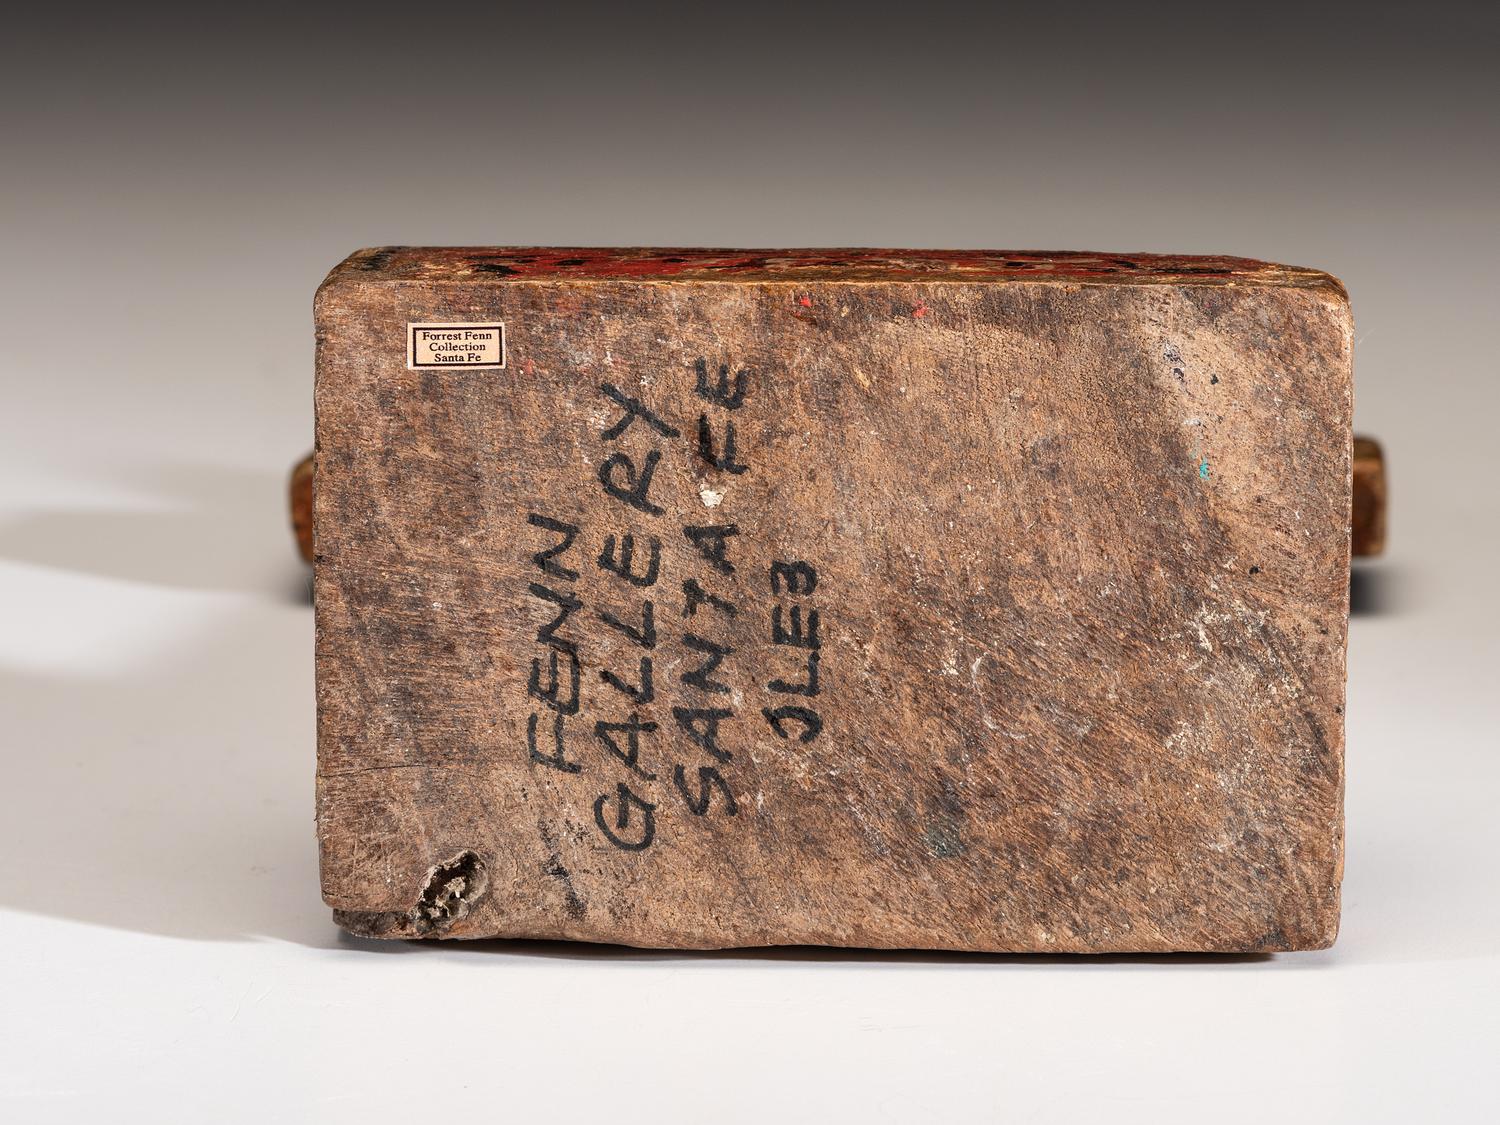 Forrest Fenn
Collection
Santa Fe
FENN
GALLERY
SANTA FE
OLEB